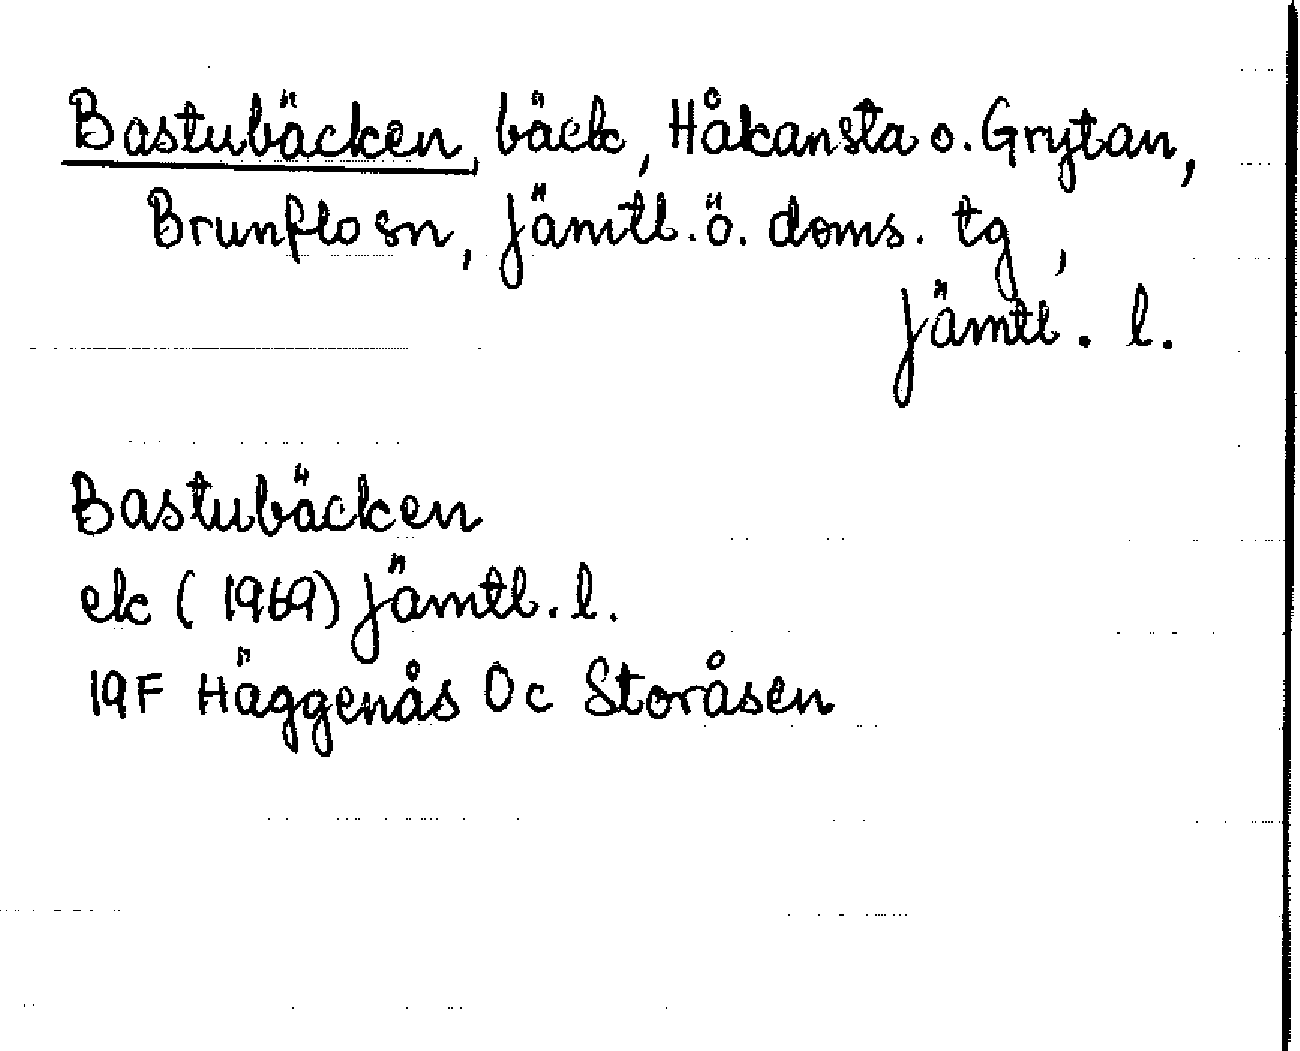 Bastubäcken, bäck, Håkansta o. Grytan,
Brunflo sn, Jämtl. ö. doms. tg,
Jämtl. l.
Bastubäcken
ek (1969) Jämtl. l.
19F Häggenås 0c Storåsen